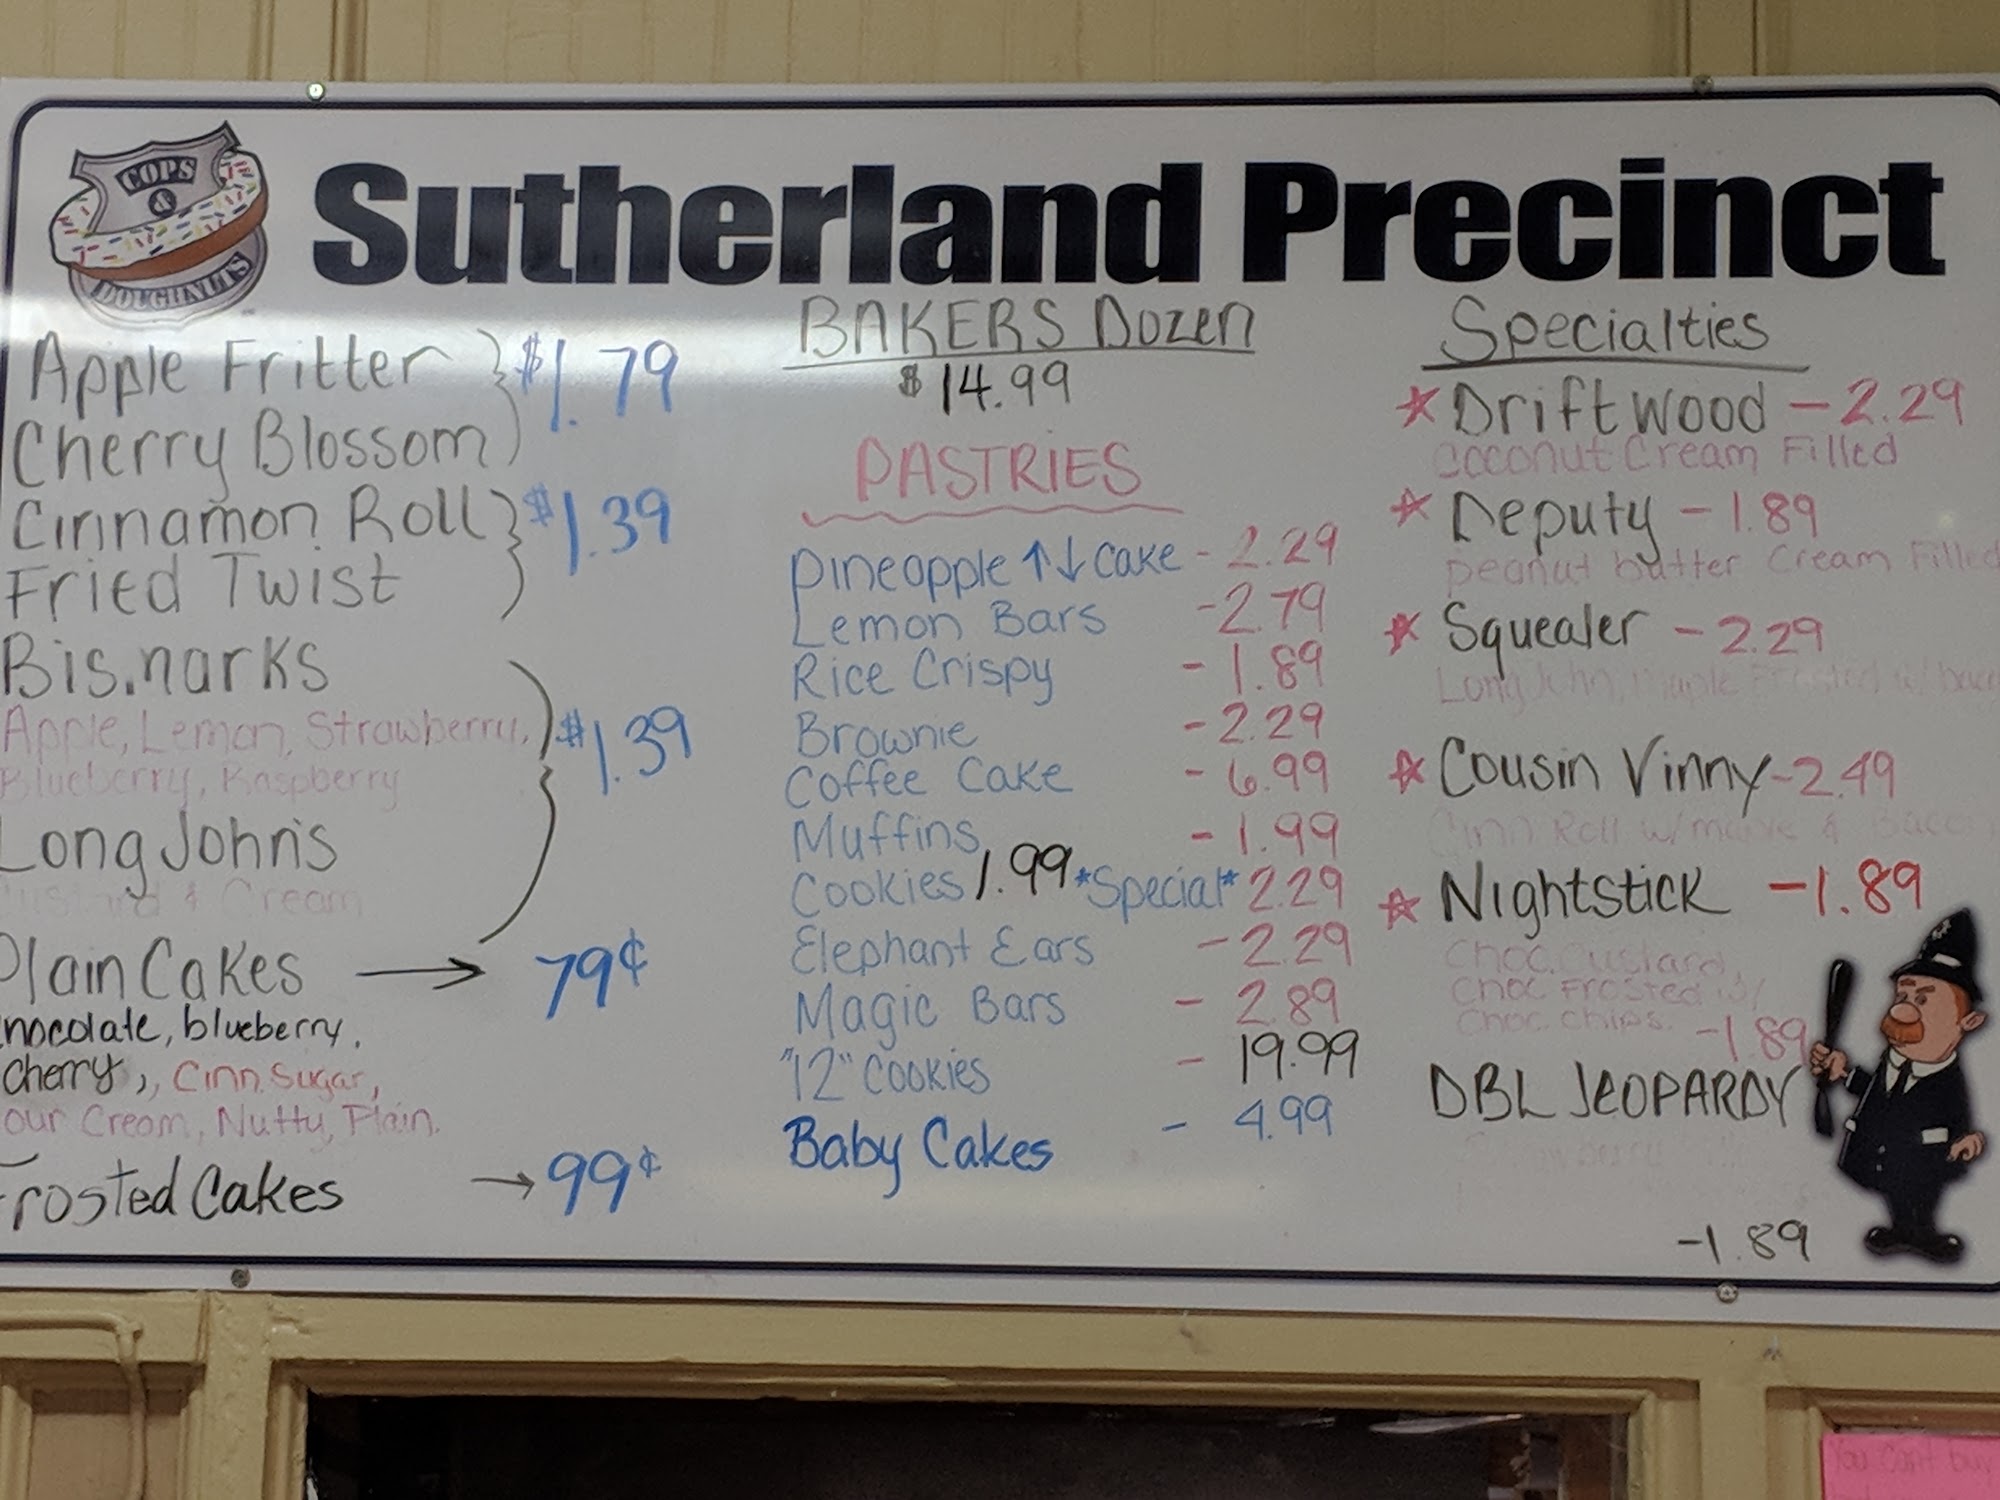 COPS
&
DOUGHNUTS
Sutherland Precinct
Apple Fritter
Cherry Blossom
$1.79
Cinnamon Roll
Fried Twist
$1.39
Bis.narks
Apple, Lemon, Strawberry,
Blueberry, Raspberry
$1.39
Long John's
ustard & Cream
Plain Cakes → 79¢
hocolate, blueberry,
Cherry,, Cinn. Sugar,
our Cream, Nutty, Plain.
Frosted Cakes → 99¢
BAKERS Dozen
$14.99
PASTRIES
Pineapple ↑↓ Cake - 2.29
Lemon Bars - 2.79
Rice Crispy - 1.89
Brownie - 2.29
Coffee Cake - 6.99
Muffins - 1.99
Cookies 1.99 *Special* 2.29
Elephant Ears - 2.29
Magic Bars - 2.89
"12" Cookies - 19.99
Baby Cakes - 4.99
Specialties
☆ Driftwood - 2.29
Coconut Cream Filled
☆ Deputy - 1.89
Peanut butter Cream Filled
☆ Squealer - 2.29
Long John, Maple Frosted w/ bac
☆ Cousin Vinny - 2.49
Cinn Roll w/ maple & Baco
☆ Nightstick - 1.89
Choc. Custard,
Choc Frosted w/
Choc. Chips. - 1.89
DBL JEOPARDY
- 1.89
You Can't buy